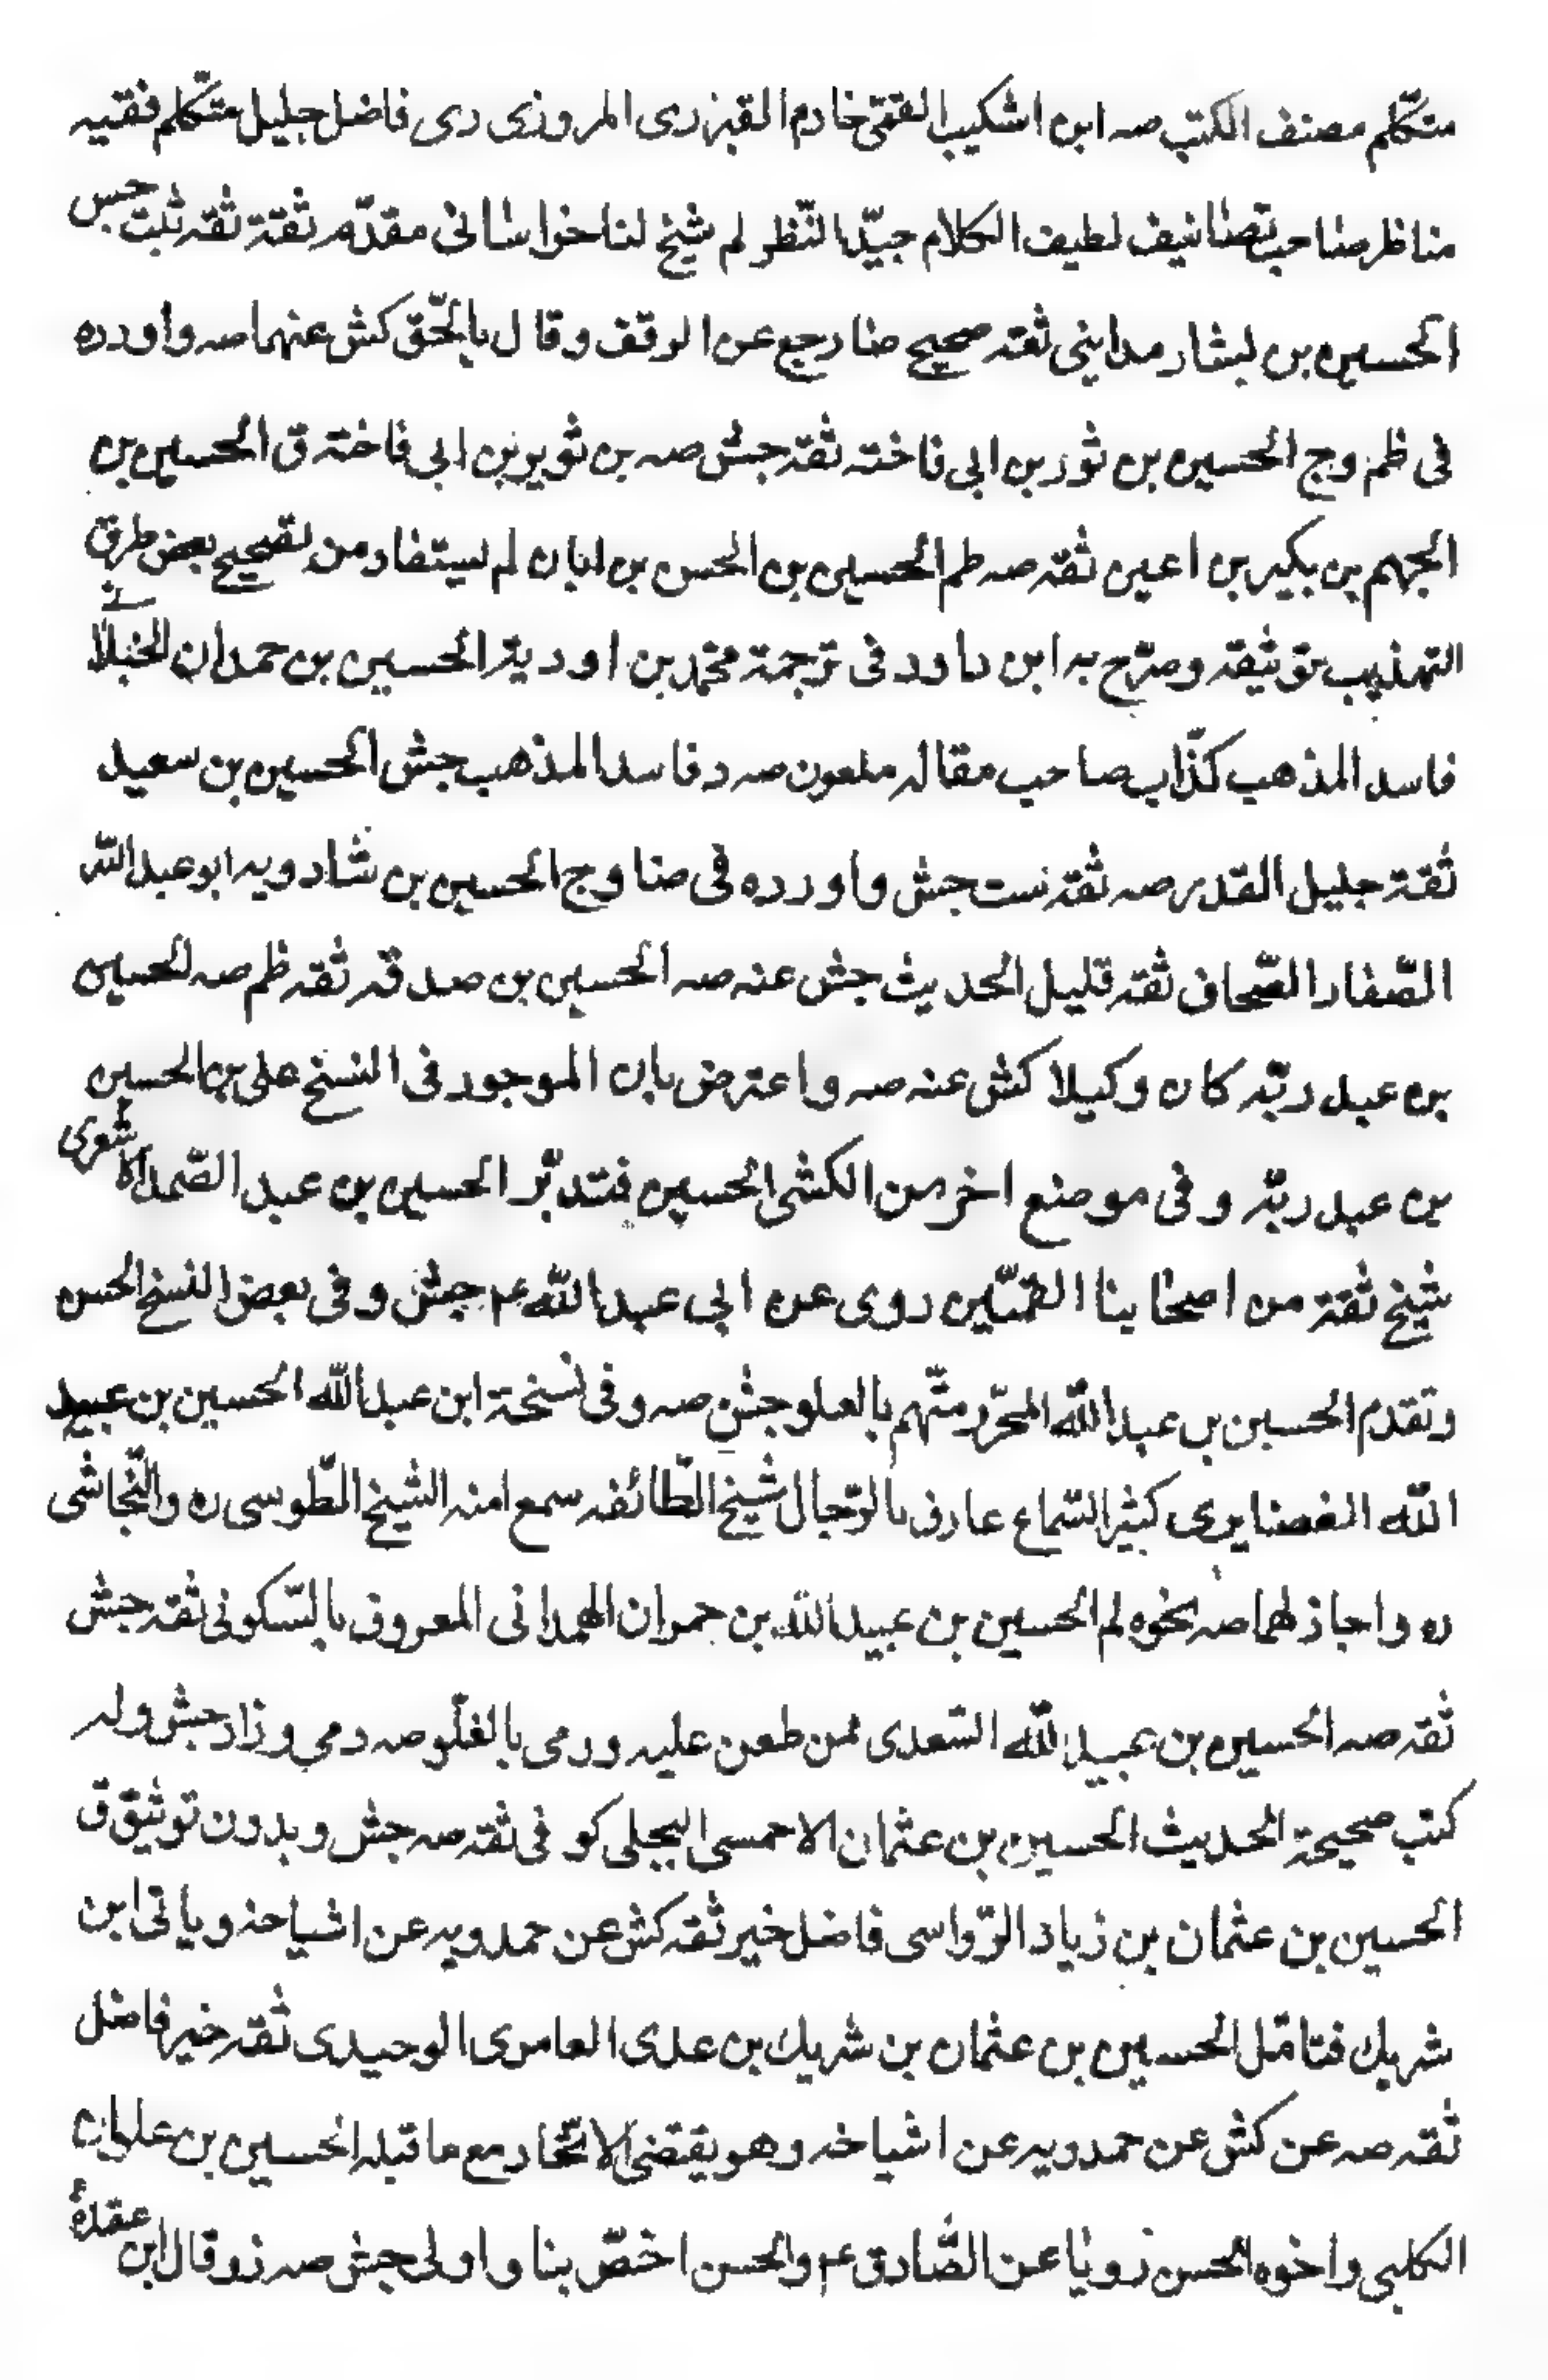 متكلم مصنف الكتب صه ابن اشكيب القمّى خادم القبر رى المروزى دى فاضل جليل متكلم فقيه
مناظر صاحب تصانيف لطيف الكلام جيّد النّظر لم شيخ لنا خراسانى مقدّم ثقة ثقه ثبت جش
الحسين بن بشار مداينى ثقه صحيح ضا رجع عن الوقف وقال بالحّق كش عنهما صه واورده
فى ظم وج الحسين بن ثور بن ابى فاخته ثقه جش صه بن ثوير بن ابى فاخته ق الحسين بن
الجهم بن بكير بن اعين ثقه صه ظم الحسين بن الحسن بن ابان لم يستفاد من تصحيح بعض طرق
التهذيب توثيقه وصرّح به ابن داود فى ترجمة محمّد بن اورمة الحسين بن حمدان
فاسد المذهب كذّاب صاحب مقاله ملعون صه د فاسد المذهب جش الحسين بن سعيد
ثقة جليل القدر صه ثقه ست جش واورده فى ضا وج الحسين بن شادويه ابو عبد الله
الصّفار الصّحاف ثقه قليل الحديث جش عنه صه الحسين بن صدقه ثقه ظم صه الحسين
بن عبد ربّه كان وكيلا كش عنه صه واعترض بان الموجود فى النسخ على بن الحسين
بن عبد ربّه وفى موضع اخر من الكشى الحسين فتدبّر الحسين بن عبد الصّمد الاشعرى
شيخ ثقة من اصحابنا القمّيّين روى عن ابى عبد الله ع م جش وفى بعض النسخ الحسن
وتقدم الحسين بن عبد الله المحرّر متّهم بالغلو جش صه وفى نسخة ابن عبد الله الحسين بن عبيد
الله الغضايرى كثير السّماع عارف بالرّجال شيخ الطّائفه سمع منه الشيخ الطّوسى ره والنّجاشى
ره واجاز لهما صه نحوه لم الحسين بن عبيد الله بن حمران الهمدانى المعروف بالسّكونى ثقه جش
ثقه صه الحسين بن عبيد الله السّعدى ممن طعن عليه ورمى بالغلّو صه رمى وزاد جش وله
كتب صحيحة الحديث الحسين بن عثمان الاحمسى البجلى كوفى ثقه صه جش وبدون توثيق ق
الحسين بن عثمان بن زياد الرّواسى فاضل خير ثقه كش عن حمدويه عن اشياخه وياتى ابن
شريك فتامّل الحسين بن عثمان بن شريك بن عدى العامرى الوحيدى ثقه خير فاضل
ثقه صه عن كش عن حمدويه عن اشياخه وهو يقتضى الاتّحاد مع ما قبله الحسين بن علوان
الكلبى واخوه الحسن رويا عن الصّادق ع م والحسن اخصّ بنا واولى جش صه زو قال ابن عقدة